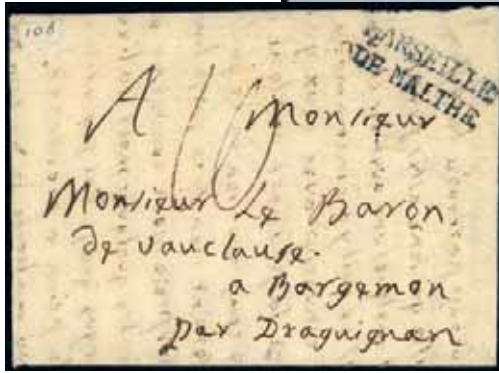 108
MARSEILLE
DE MALTHE
A Monsieur
16
Monsieur Le Baron
de vauclause.
a Bargemon
par Draguignan